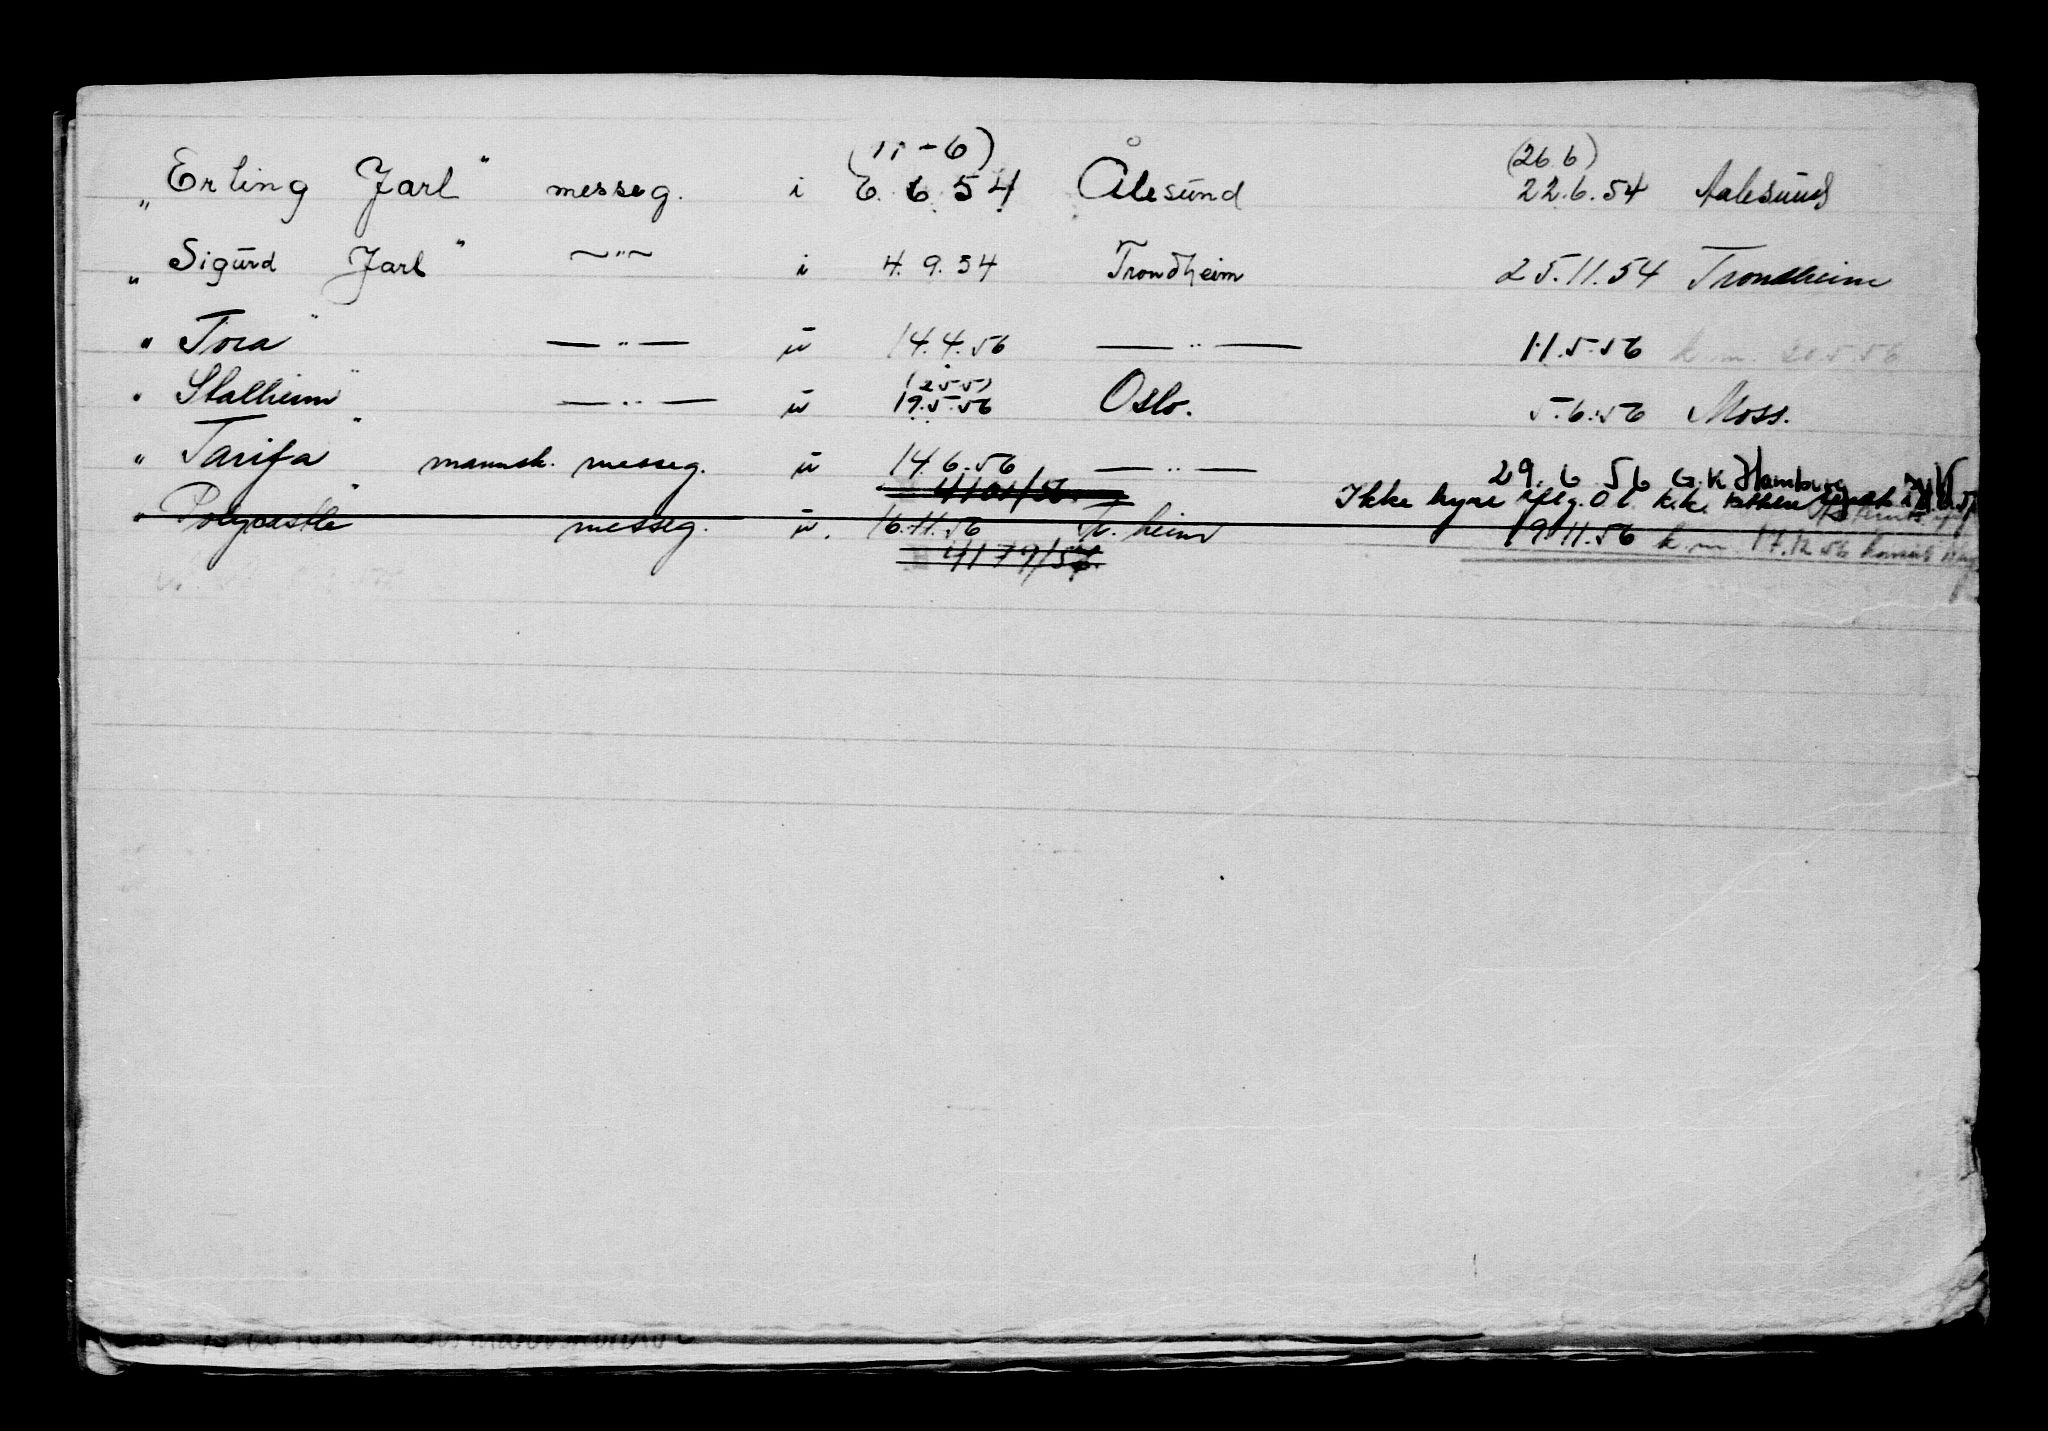 (11-6) (26 6)
„Erling Jarl" messeg. i 6. 54 Ålesund 22.6.54 Aalesund
„Sigurd Jarl" —"— i 4. 9. 54 Trondheim 25.11.54 Trondheim
" Tora" —"— u 14.4.56 —"— 11.5.56 k.m. 20.5.56
" Stalheim" —"— u 19.5.56 Oslo. 5.6.56 Moss.
" Tarifa" mannsk. messeg. u 14.6.56 —"— 29. 6 56 G.K Hamburg
Ikke hyre iflg. k.k.
" Polycastle" messeg. u. 16.11.56 Tr.heim 19.11.56 k.m. 17.12.56